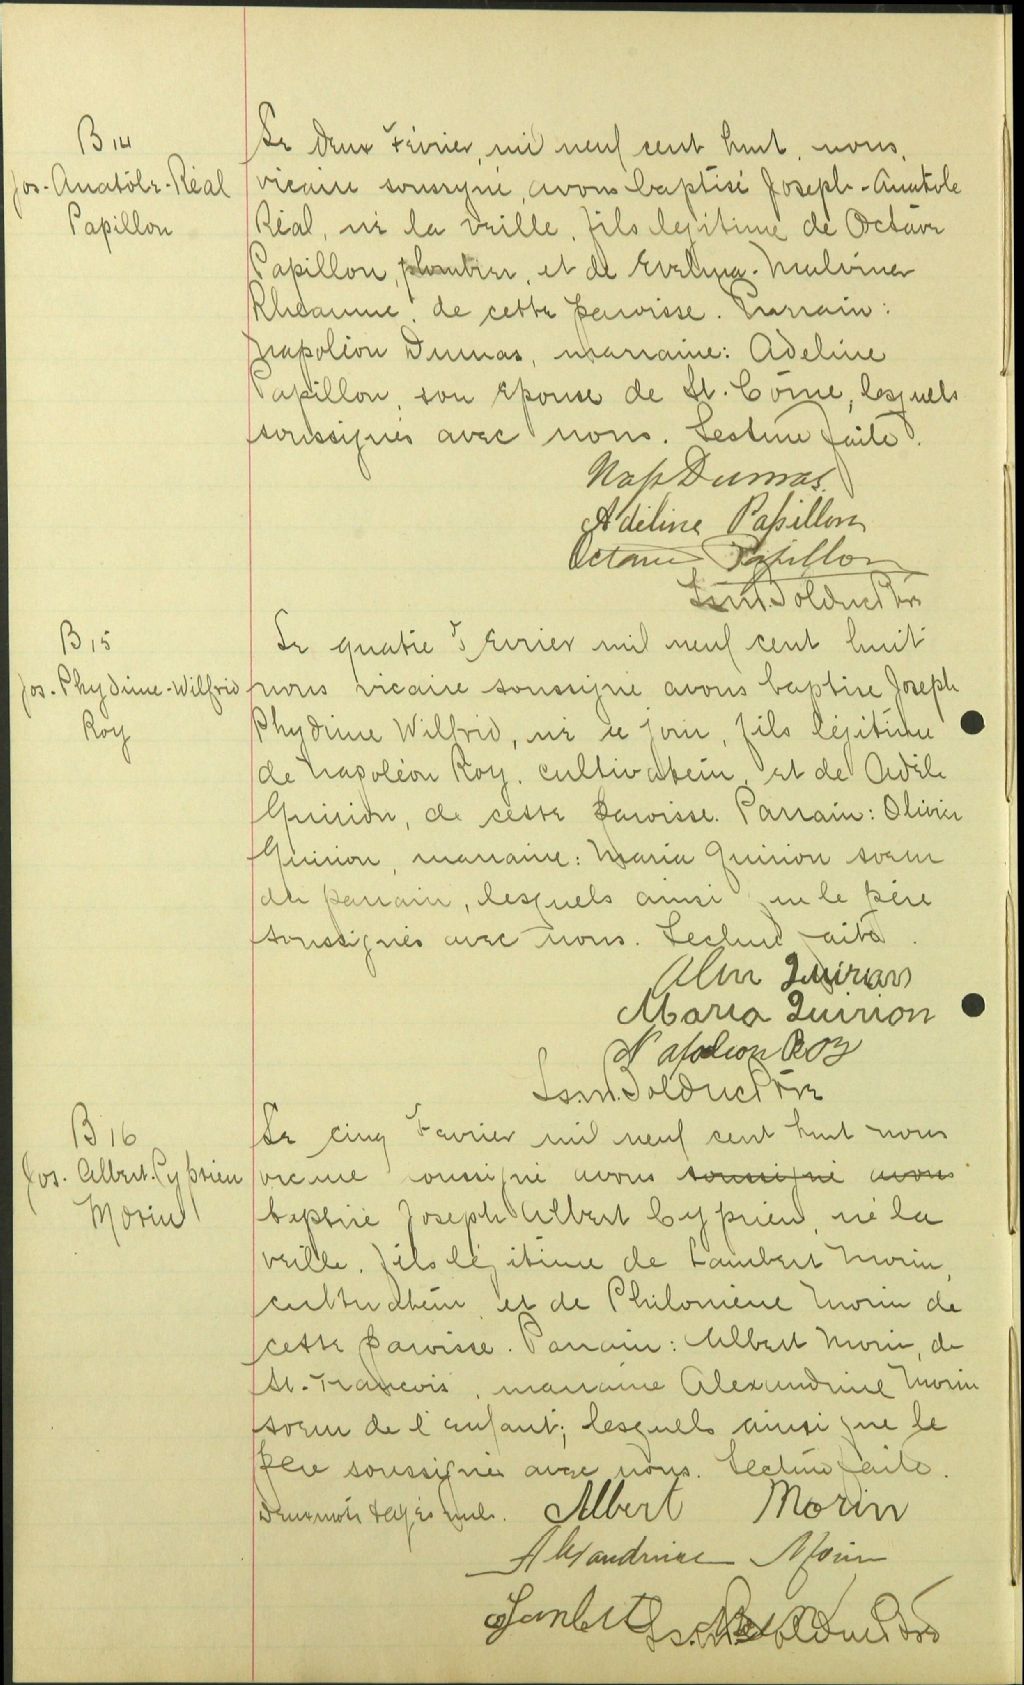 B 14
Jos-Anatole-Réal
Papillon
Le deux Février, mil neuf cent huit, nous,
vicaire soussigné, avons baptisé Joseph-Anatole
Réal, né la veille, fils légitime de Octave
Papillon, plombier, et de Evelina-Malvina
Rhéaume, de cette paroisse. Parrain:
Napoléon Dumas, marraine: Adeline
Papillon, son épouse de St. Côme, lesquels
soussignés avec nous. Lecture faite.
Nap Dumas.
Adéline Papillon
Octave Papillon
Bolduc Ptre
B 15
Jos-Phydime-Wilfrid
Roy
Le quatre Février mil neuf cent huit
nous vicaire soussigné avons baptisé Joseph
Phydime Wilfrid, né ce jour, fils légitime
de Napoléon Roy, cultivateur, et de Adèle
Quirion, de cette paroisse. Parrain: Olivier
Quirion, marraine: Maria Quirion soeur
du parrain, lesquels ainsi que le père
soussignés avec nous. Lecture faite.
Quirion
Maria Quirion
Napoleon Roy
Bolduc Ptre
B 16
Jos. Albert-Cyprien
Morin
Le cinq Février mil neuf cent huit nous
vicaire soussigné avons soussigné avons
baptisé Joseph Albert Cyprien, né la
veille, fils légitime de Lambert Morin,
cultivateur, et de Philomène Morin de
cette paroisse. Parrain: Albert Morin, de
St-François, marraine Alexandrine Morin
soeur de l'enfant; lesquels ainsi que le
père soussignés avec nous. Lecture faite.
Deux mots rayés nuls. Albert Morin
Alexandrine Morin
Lambert
Bolduc Ptre